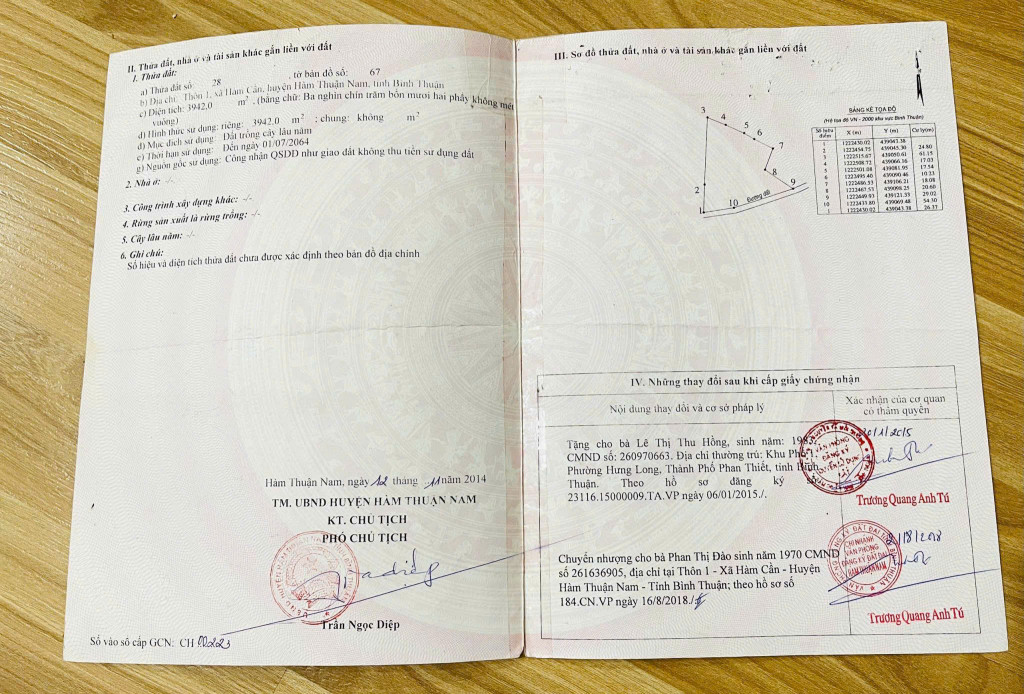 II. Thửa đất, nhà ở và tài sản khác gắn liền với đất
1. Thửa đất:
a) Thửa đất số: 28 , tờ bản đồ số: 67
b) Địa chỉ: Thôn 1, xã Hàm Cần, huyện Hàm Thuận Nam, tỉnh Bình Thuận
c) Diện tích: 3942,0 m², (bằng chữ: Ba nghìn chín trăm bốn mươi hai phẩy không mét
vuông)
d) Hình thức sử dụng: riêng: 3942.0 m² ; chung: không m²
đ) Mục đích sử dụng: Đất trồng cây lâu năm
e) Thời hạn sử dụng: Đến ngày 01/07/2064
g) Nguồn gốc sử dụng: Công nhận QSDĐ như giao đất không thu tiền sử dụng đất
2. Nhà ở: -/-
3. Công trình xây dựng khác: -/-
4. Rừng sản xuất là rừng trồng: -/-
5. Cây lâu năm: -/-
6. Ghi chú:
Số hiệu và diện tích thửa đất chưa được xác định theo bản đồ địa chính
Hàm Thuận Nam, ngày 12 tháng 11 năm 2014
TM. UBND HUYỆN HÀM THUẬN NAM
KT. CHỦ TỊCH
PHÓ CHỦ TỊCH
Trần Ngọc Diệp
Số vào sổ cấp GCN: CH 00223
III. Sơ đồ thửa đất, nhà ở và tài sản khác gắn liền với đất
3
4
5
6
7
8
9
2
10
1
Đường đất
BẢNG KÊ TỌA ĐỘ
(Hệ tọa độ VN - 2000 khu vực Bình Thuận)
Số hiệu điểm X (m) Y (m) Cự ly(m)
1 1222430.02 439043.38
2 1222454.75 439045.30 24.80
3 1222515.87 439050.61 61.15
4 1222508.72 439066.36 17.03
5 1222501.08 439081.95 17.54
6 1222495.40 439090.46 10.23
7 1222486.53 439106.21 18.08
8 1222467.53 439098.25 20.60
9 1222449.93 439121.33 29.02
10 1222433.80 439069.48 54.30
1 1222430.02 439043.38 26.37
IV. Những thay đổi sau khi cấp giấy chứng nhận
Nội dung thay đổi và cơ sở pháp lý
Xác nhận của cơ quan
có thẩm quyền
Tặng cho bà Lê Thị Thu Hồng, sinh năm: 1983,
CMND số: 260970663. Địa chỉ thường trú: Khu Phố 1,
Phường Hưng Long, Thành Phố Phan Thiết, tỉnh Bình
Thuận. Theo hồ sơ đăng ký số
23116.15000009.TA.VP ngày 06/01/2015./.
VĂN PHÒNG
ĐĂNG KÝ
Trương Quang Anh Tú
Chuyển nhượng cho bà Phan Thị Đào sinh năm 1970 CMND
số 261636905, địa chỉ tại Thôn 1 - Xã Hàm Cần - Huyện
Hàm Thuận Nam - Tỉnh Bình Thuận; theo hồ sơ số
184.CN.VP ngày 16/8/2018./.
CHI NHÁNH
VĂN PHÒNG
ĐĂNG KÝ ĐẤT ĐAI
HÀM THUẬN NAM
Trương Quang Anh Tú